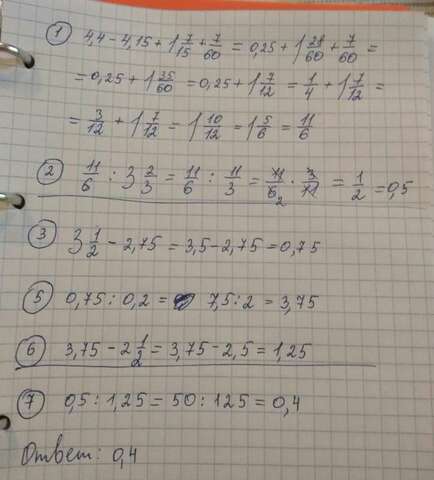 ① 4,4 - 4,15 + 1 7/15 + 7/60 = 0,25 + 1 28/60 + 7/60 =
= 0,25 + 1 35/60 = 0,25 + 1 7/12 = 1/4 + 1 7/12 =
= 3/12 + 1 7/12 = 1 10/12 = 1 5/6 = 11/6
② 11/6 : 3 2/3 = 11/6 : 11/3 = 11/6 2 · 3/11 = 1/2 = 0,5
③ 3 1/2 - 2,75 = 3,5 - 2,75 = 0,75
⑤ 0,75 : 0,2 = 7,5 : 2 = 3,75
⑥ 3,75 - 2 1/2 = 3,75 - 2,5 = 1,25
⑦ 0,5 : 1,25 = 50 : 125 = 0,4
Ответ: 0,4